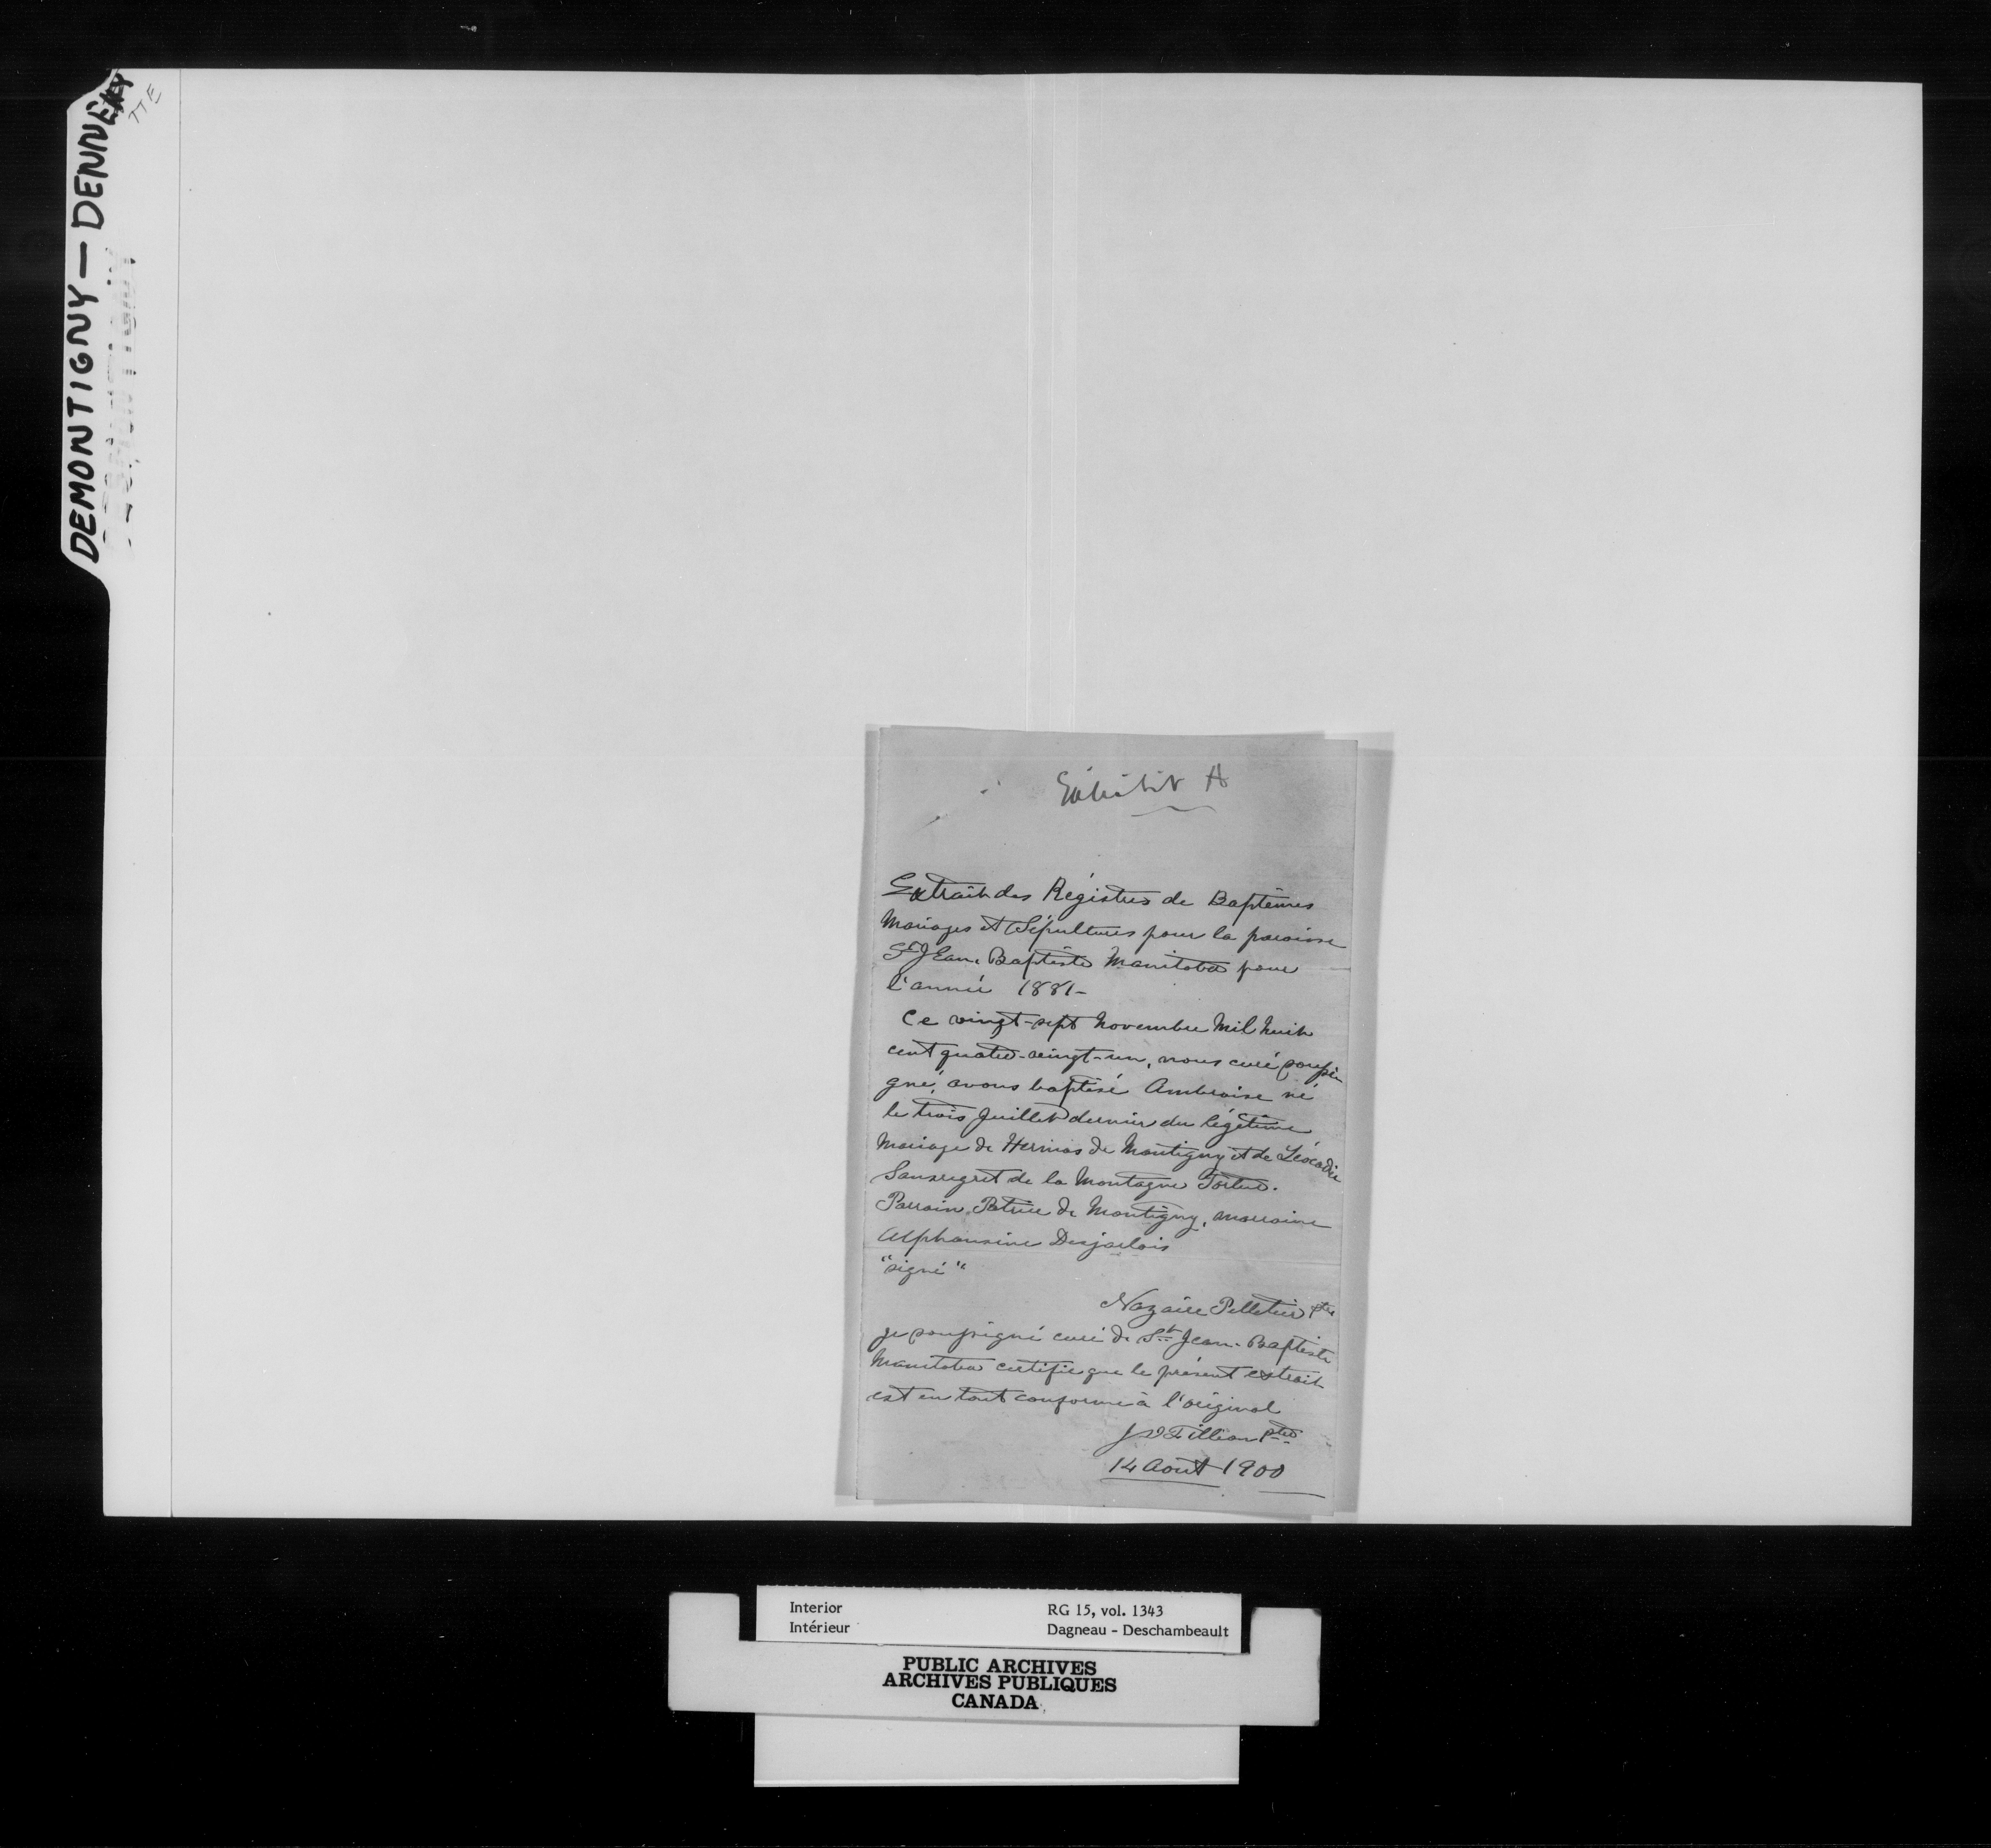 DEMONTIGNY — DENNE
TTE
Exhibit A
Extrait des Régistres de Baptêmes
Mariages et Sépultures pour la paroisse
St Jean-Baptiste Manitoba pour
l'année 1881-
Ce vingt-sept Novembre Mil huit
cent quatre-vingt-un, nous curé soussi
gné, avons baptisé Ambroise né
le trois Juillet dernier du légitime
Mariage de Hermas de Montigny et de Léocadie
Sansregret de la Montagne Tortue.
Parrain, Patrice de Montigny, marraine
Alphonsine Desjarlais
"signé"
Nazaire Pelletier Ptre
je soussigné curé de St Jean-Baptiste
Manitoba certifie que le présent extrait
est en tout conforme à l'original
J D Fillion Ptre
14 Août 1900
Interior RG 15, vol. 1343
Intérieur Dagneau - Deschambeault
PUBLIC ARCHIVES
ARCHIVES PUBLIQUES
CANADA